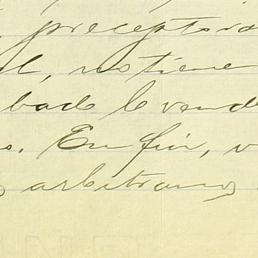 preceptor
l, no tiene
bado lo vend
s. En fin, v
arbitramos